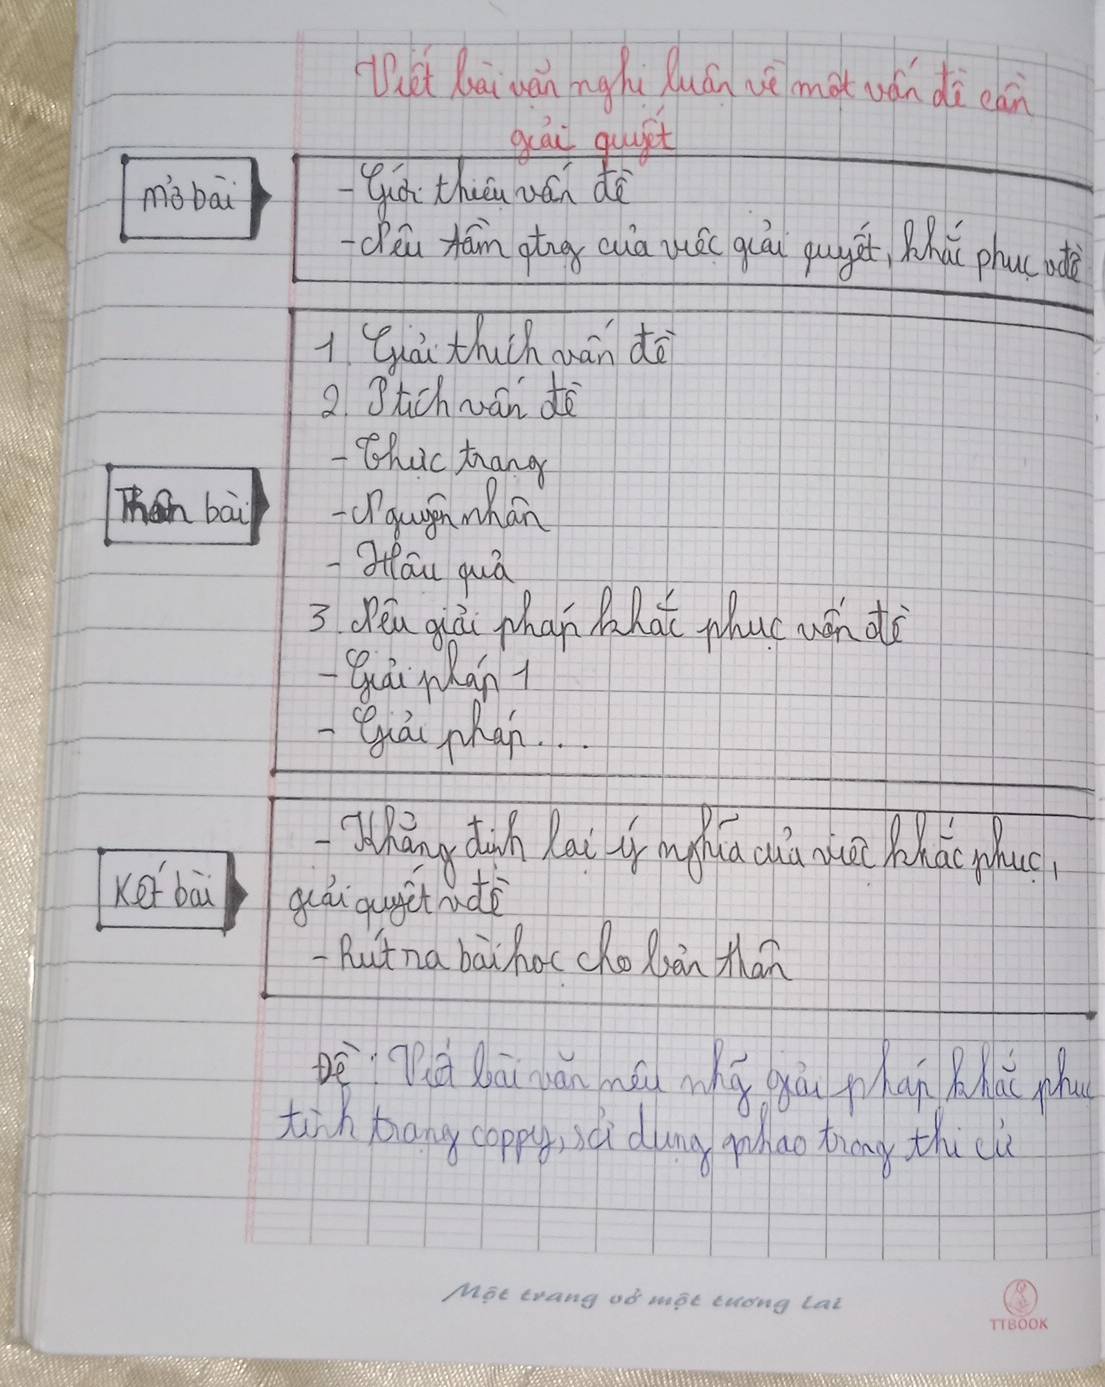 Viết bài văn nghị luận về một vấn đề cần
giải quyết
mở bài
- Giới thiệu vấn đề
- Nêu tầm qtrọg của việc giải quyết, khắc phục vđề
1. Giải thích vấn đề
2. Ptích vấn đề
- Thực trạng
Thân bài
- Nguyên nhân
- Hậu quả
3. Nêu giải pháp khắc phục vấn đề
- Giải pháp 1
- Giải pháp...
- Khẳng định lại ý nghĩa của việc khắc phục,
Kết bài
giải quyết vđề
- Rút ra bài học cho bản thân
Đề: Viết bài văn nêu nhg giải pháp khắc phục
tình trạng coppy, sử dụng phao trong thi cử
Một trang vở một tương lai
TTBOOK